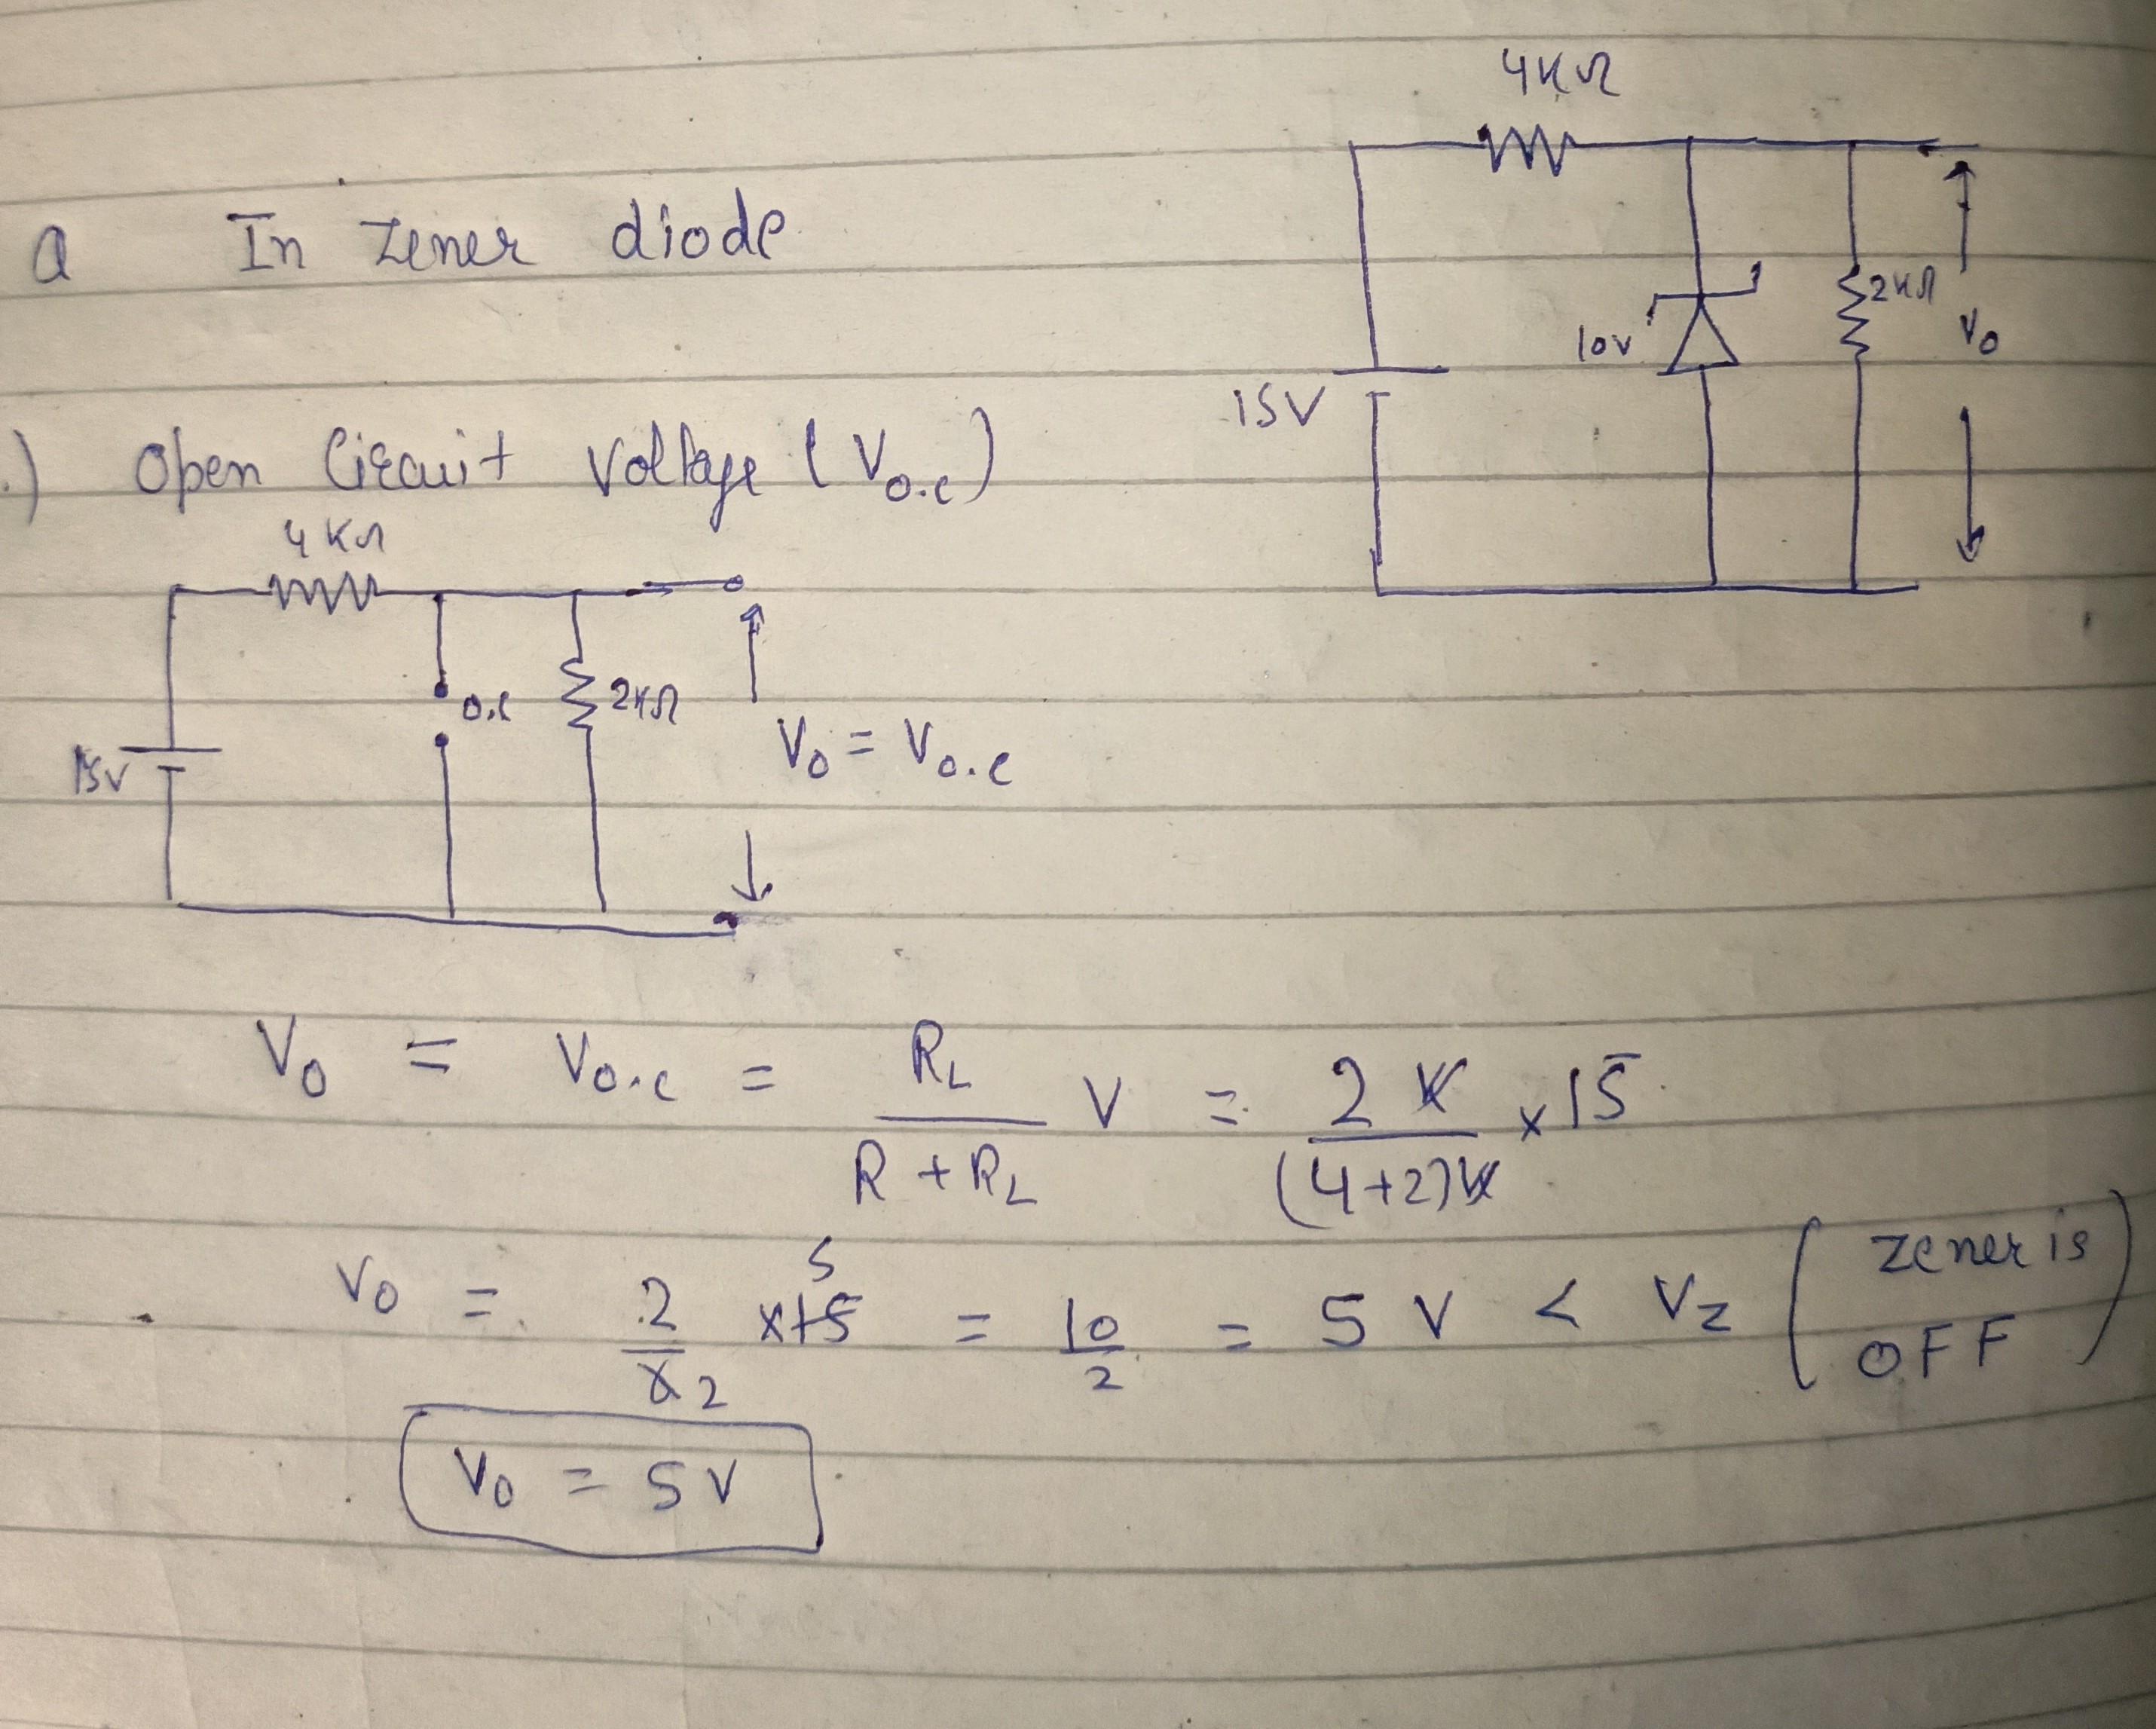 4KΩ
Q In Zener diode
2KΩ
10V
V₀
15V
.) Open Circuit Voltage (V₀.c)
4KΩ
o.c
2KΩ
15V
V₀ = V₀.c
V₀ = V₀.c = R_L / (R + R_L) V = 2K / (4+2)K × 15
V₀ = 2/6 2 ×15 5 = 10/2 = 5 V < V_Z (Zener is OFF)
V₀ = 5 V